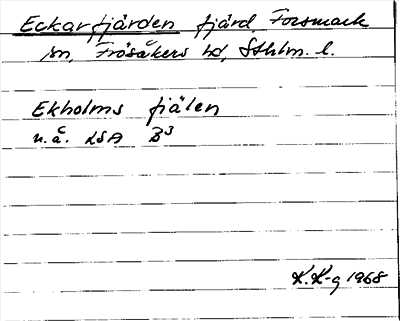 Eckarfjärden fjärd, Forsmark
sn, Frösåkers hd, Sthlm. l.
Ekholms fjälen
u.å. LSA B3
K.K-g 1968